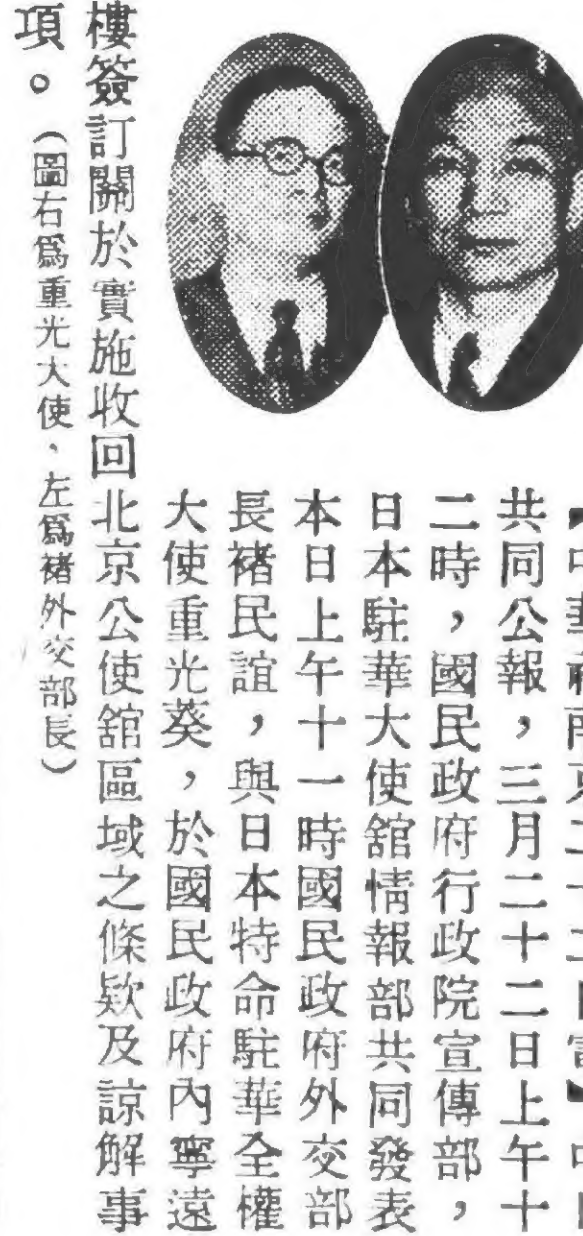 共同公報，三月二十二日上午十
二時，國民政府行政院宣傳部，
日本駐華大使舘情報部共同發表
本日上午十一時國民政府外交部
長褚民誼，與日本特命駐華全權
大使重光葵，於國民政府內寧遠
樓簽訂關於實施收回北京公使舘區域之條欵及諒解事
項。（圖右爲重光大使、左爲褚外交部長）